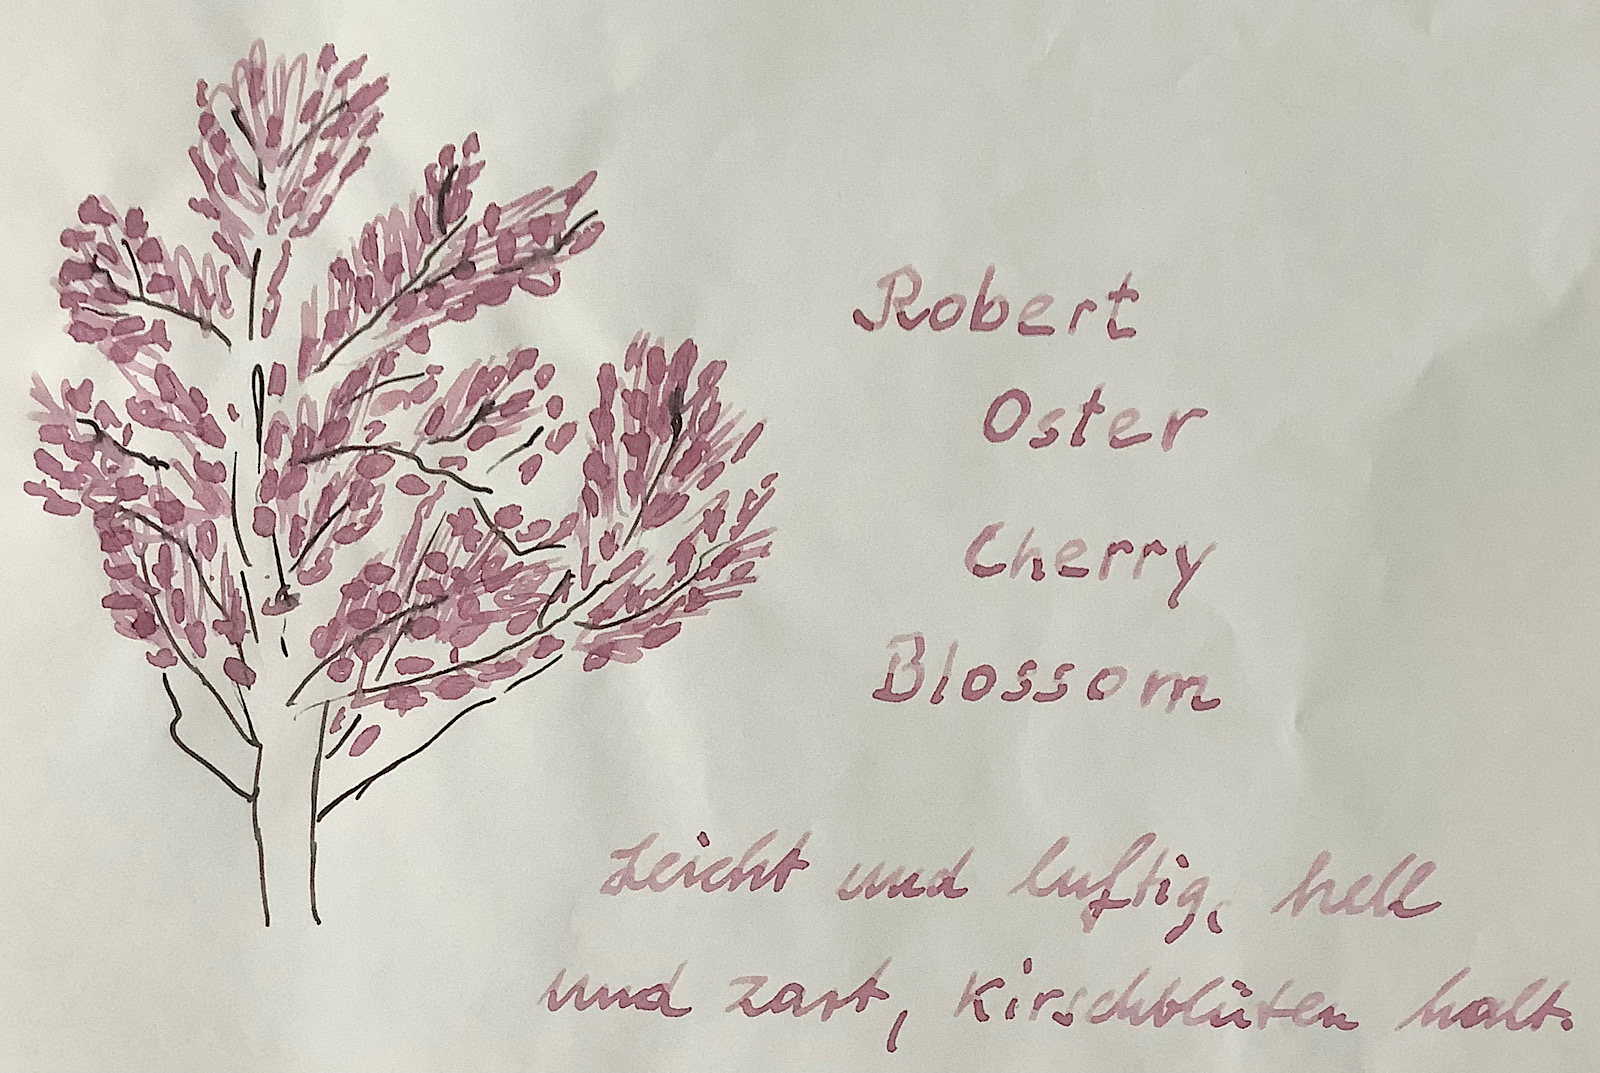 Robert
Oster
Cherry
Blossom
Leicht und luftig, hell
und zart, Kirschblüten halt.